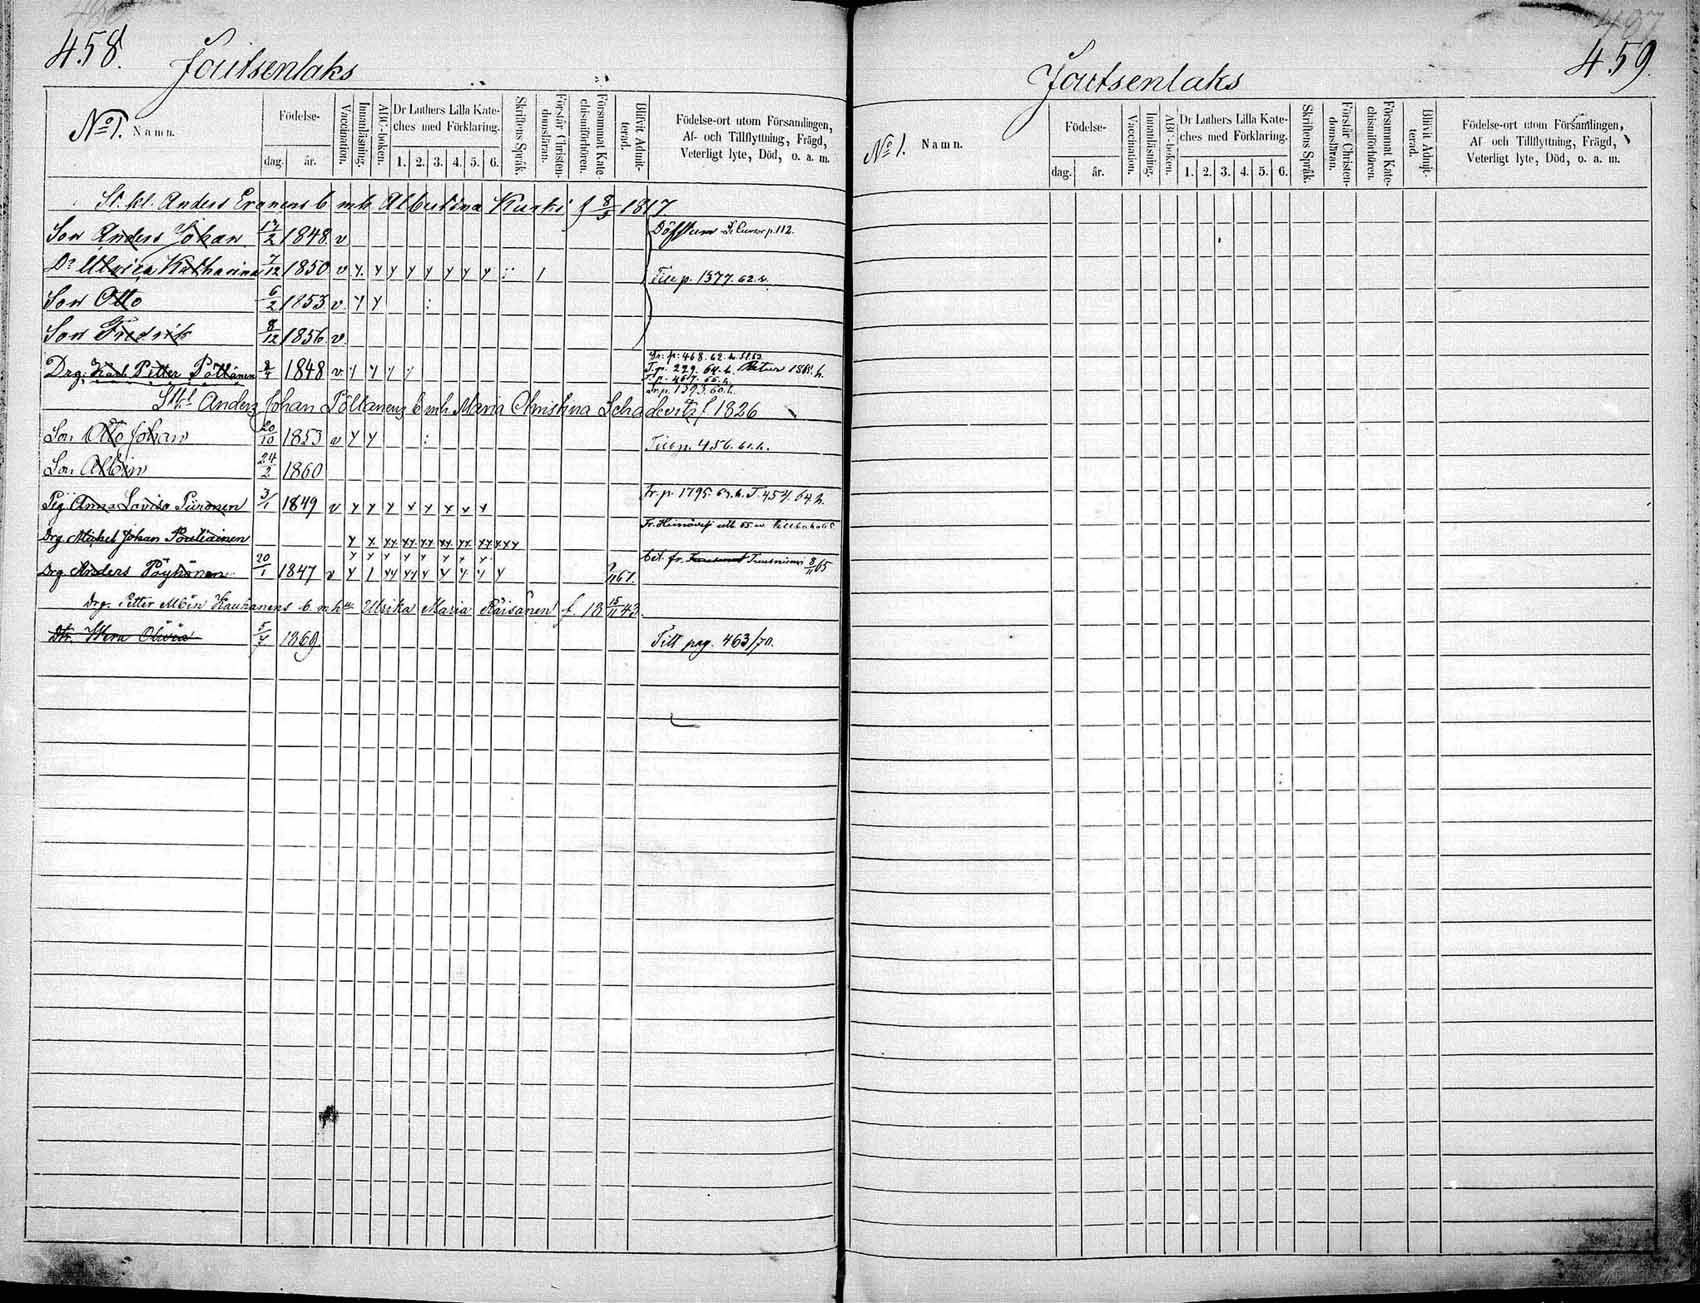 458.
Joutsenlaks
No 1. Namn.
Födelse-
dag. år.
Vaccination.
Innanläsning.
ABC-boken.
Dr Luthers Lilla Kate-
ches med Förklaring.
1. 2. 3. 4. 5. 6.
Skriftens Språk.
Förstår Christen-
domsläran.
Försummat Kate-
chismiförhören.
Blifvit Admit-
terad.
Födelse-ort utom Församlingen,
Af- och Tillflyttning, Frägd,
Veterligt lyte, Död, o. a. m.
Anders Eronens b m h Albertina Kurki f 8/5 1817.
Son Anders Johan 17/2 1848 v p. 112.
Dr Ulrica Katharina 7/12 1850 v y y y y y y y y Till p. 1377. 62.
Son Otto 6/2 1853 v y y
Son Fredrik 8/12 1856 v
Drg. Karl Petter Pöllänen 1848 v y y y y fr. p. 468. 62. h.
T. p. 229. 64. h.
T. p. 467. 65. h.
Anders Johan Pöllänens b m h Maria Christina f. 1826
Son Otto Johan 20/10 1853 v y y Till p. 456. 61. h.
Son Albin 24/2 1860
Pig. Anna Lovisa Piironen 3/1 1849 v y y y y y y y y Fr. p. 1795. 63. h. T. 454. 64 h.
Drg. Mickel Johan Poutiainen y y yy yy yy yy yy yy yyy
Drg. Anders Pöyhönen 20/1 1847 v y 1 yy yy y y y y y 67. 8/11 65
Drg. Petter Albin Kauhanens b. m. h. Ulrika Maria Räisänen f. 18 15/11 43.
Dtr. Wera Olivia 5/7 1869. Till pag. 463/70.
459.
Joutsenlaks
No 1. Namn.
Födelse-
dag. år.
Vaccination.
Innanläsning.
ABC-boken.
Dr Luthers Lilla Kate-
ches med Förklaring.
1. 2. 3. 4. 5. 6.
Skriftens Språk.
Förstår Christen-
domsläran.
Försummat Kate-
chismiförhören.
Blifvit Admit-
terad.
Födelse-ort utom Församlingen,
Af- och Tillflyttning, Frägd,
Veterligt lyte, Död, o. a. m.